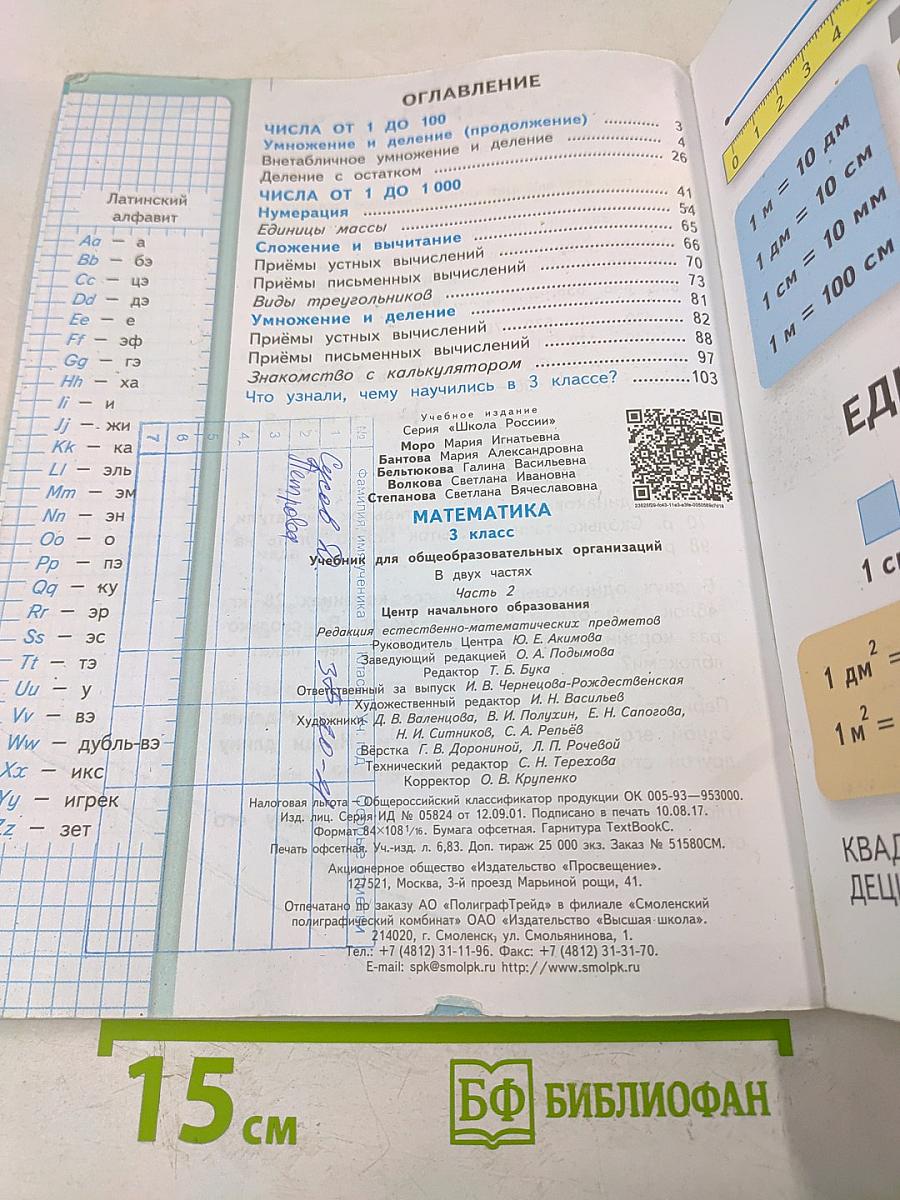 Латинский
алфавит
Aa – а
Bb – бэ
Cc – цэ
Dd – дэ
Ee – е
Ff – эф
Gg – гэ
Hh – ха
Ii – и
Jj – жи
Kk – ка
Ll – эль
Mm – эм
Nn – эн
Oo – о
Pp – пэ
Qq – ку
Rr – эр
Ss – эс
Tt – тэ
Uu – у
Vv – вэ
Ww – дубль-вэ
Xx – икс
Yy – игрек
Zz – зет
ОГЛАВЛЕНИЕ
ЧИСЛА ОТ 1 ДО 100
Умножение и деление (продолжение) .......... 3
Внетабличное умножение и деление .......... 4
Деление с остатком .......... 26
ЧИСЛА ОТ 1 ДО 1 000
Нумерация .......... 41
Единицы массы .......... 54
Сложение и вычитание .......... 65
Приёмы устных вычислений .......... 66
Приёмы письменных вычислений .......... 70
Виды треугольников .......... 73
Умножение и деление .......... 81
Приёмы устных вычислений .......... 82
Приёмы письменных вычислений .......... 88
Знакомство с калькулятором .......... 97
Что узнали, чему научились в 3 классе? .......... 103
Учебное издание
Серия «Школа России»
Моро Мария Игнатьевна
Бантова Мария Александровна
Бельтюкова Галина Васильевна
Волкова Светлана Ивановна
Степанова Светлана Вячеславовна
МАТЕМАТИКА
3 класс
Учебник для общеобразовательных организаций
В двух частях
Часть 2
Центр начального образования
Редакция естественно-математических предметов
Руководитель Центра Ю. Е. Акимова
Заведующий редакцией О. А. Подымова
Редактор Т. Б. Бука
Ответственный за выпуск И. В. Чернецова-Рождественская
Художественный редактор И. Н. Васильев
Художники Д. В. Валенцова, В. И. Полухин, Е. Н. Сапогова,
Н. И. Ситников, С. А. Репьёв
Вёрстка Г. В. Дорониной, Л. П. Рочевой
Технический редактор С. Н. Терехова
Корректор О. В. Крупенко
Налоговая льгота – Общероссийский классификатор продукции ОК 005-93—953000.
Изд. лиц. Серия ИД № 05824 от 12.09.01. Подписано в печать 10.08.17.
Формат 84×108 1/16. Бумага офсетная. Гарнитура TextBookC.
Печать офсетная. Уч.-изд. л. 6,83. Доп. тираж 25 000 экз. Заказ № 51580СМ.
Акционерное общество «Издательство «Просвещение».
127521, Москва, 3-й проезд Марьиной рощи, 41.
Отпечатано по заказу АО «ПолиграфТрейд» в филиале «Смоленский
полиграфический комбинат» ОАО «Издательство «Высшая школа».
214020, г. Смоленск, ул. Смольянинова, 1.
Тел.: +7 (4812) 31-11-96. Факс: +7 (4812) 31-31-70.
E-mail: spk@smolpk.ru http://www.smolpk.ru
Фамилия, имя ученика
1
2
3
4
5
6
7
Петрова
0 1 2 3 4
1 м = 10 дм
1 дм = 10 см
1 см = 10 мм
1 м = 100 см
ЕД
1 с
1 дм² =
1 м² =
КВАД
ДЕЦИ
15 см
БФ БИБЛИОФАН